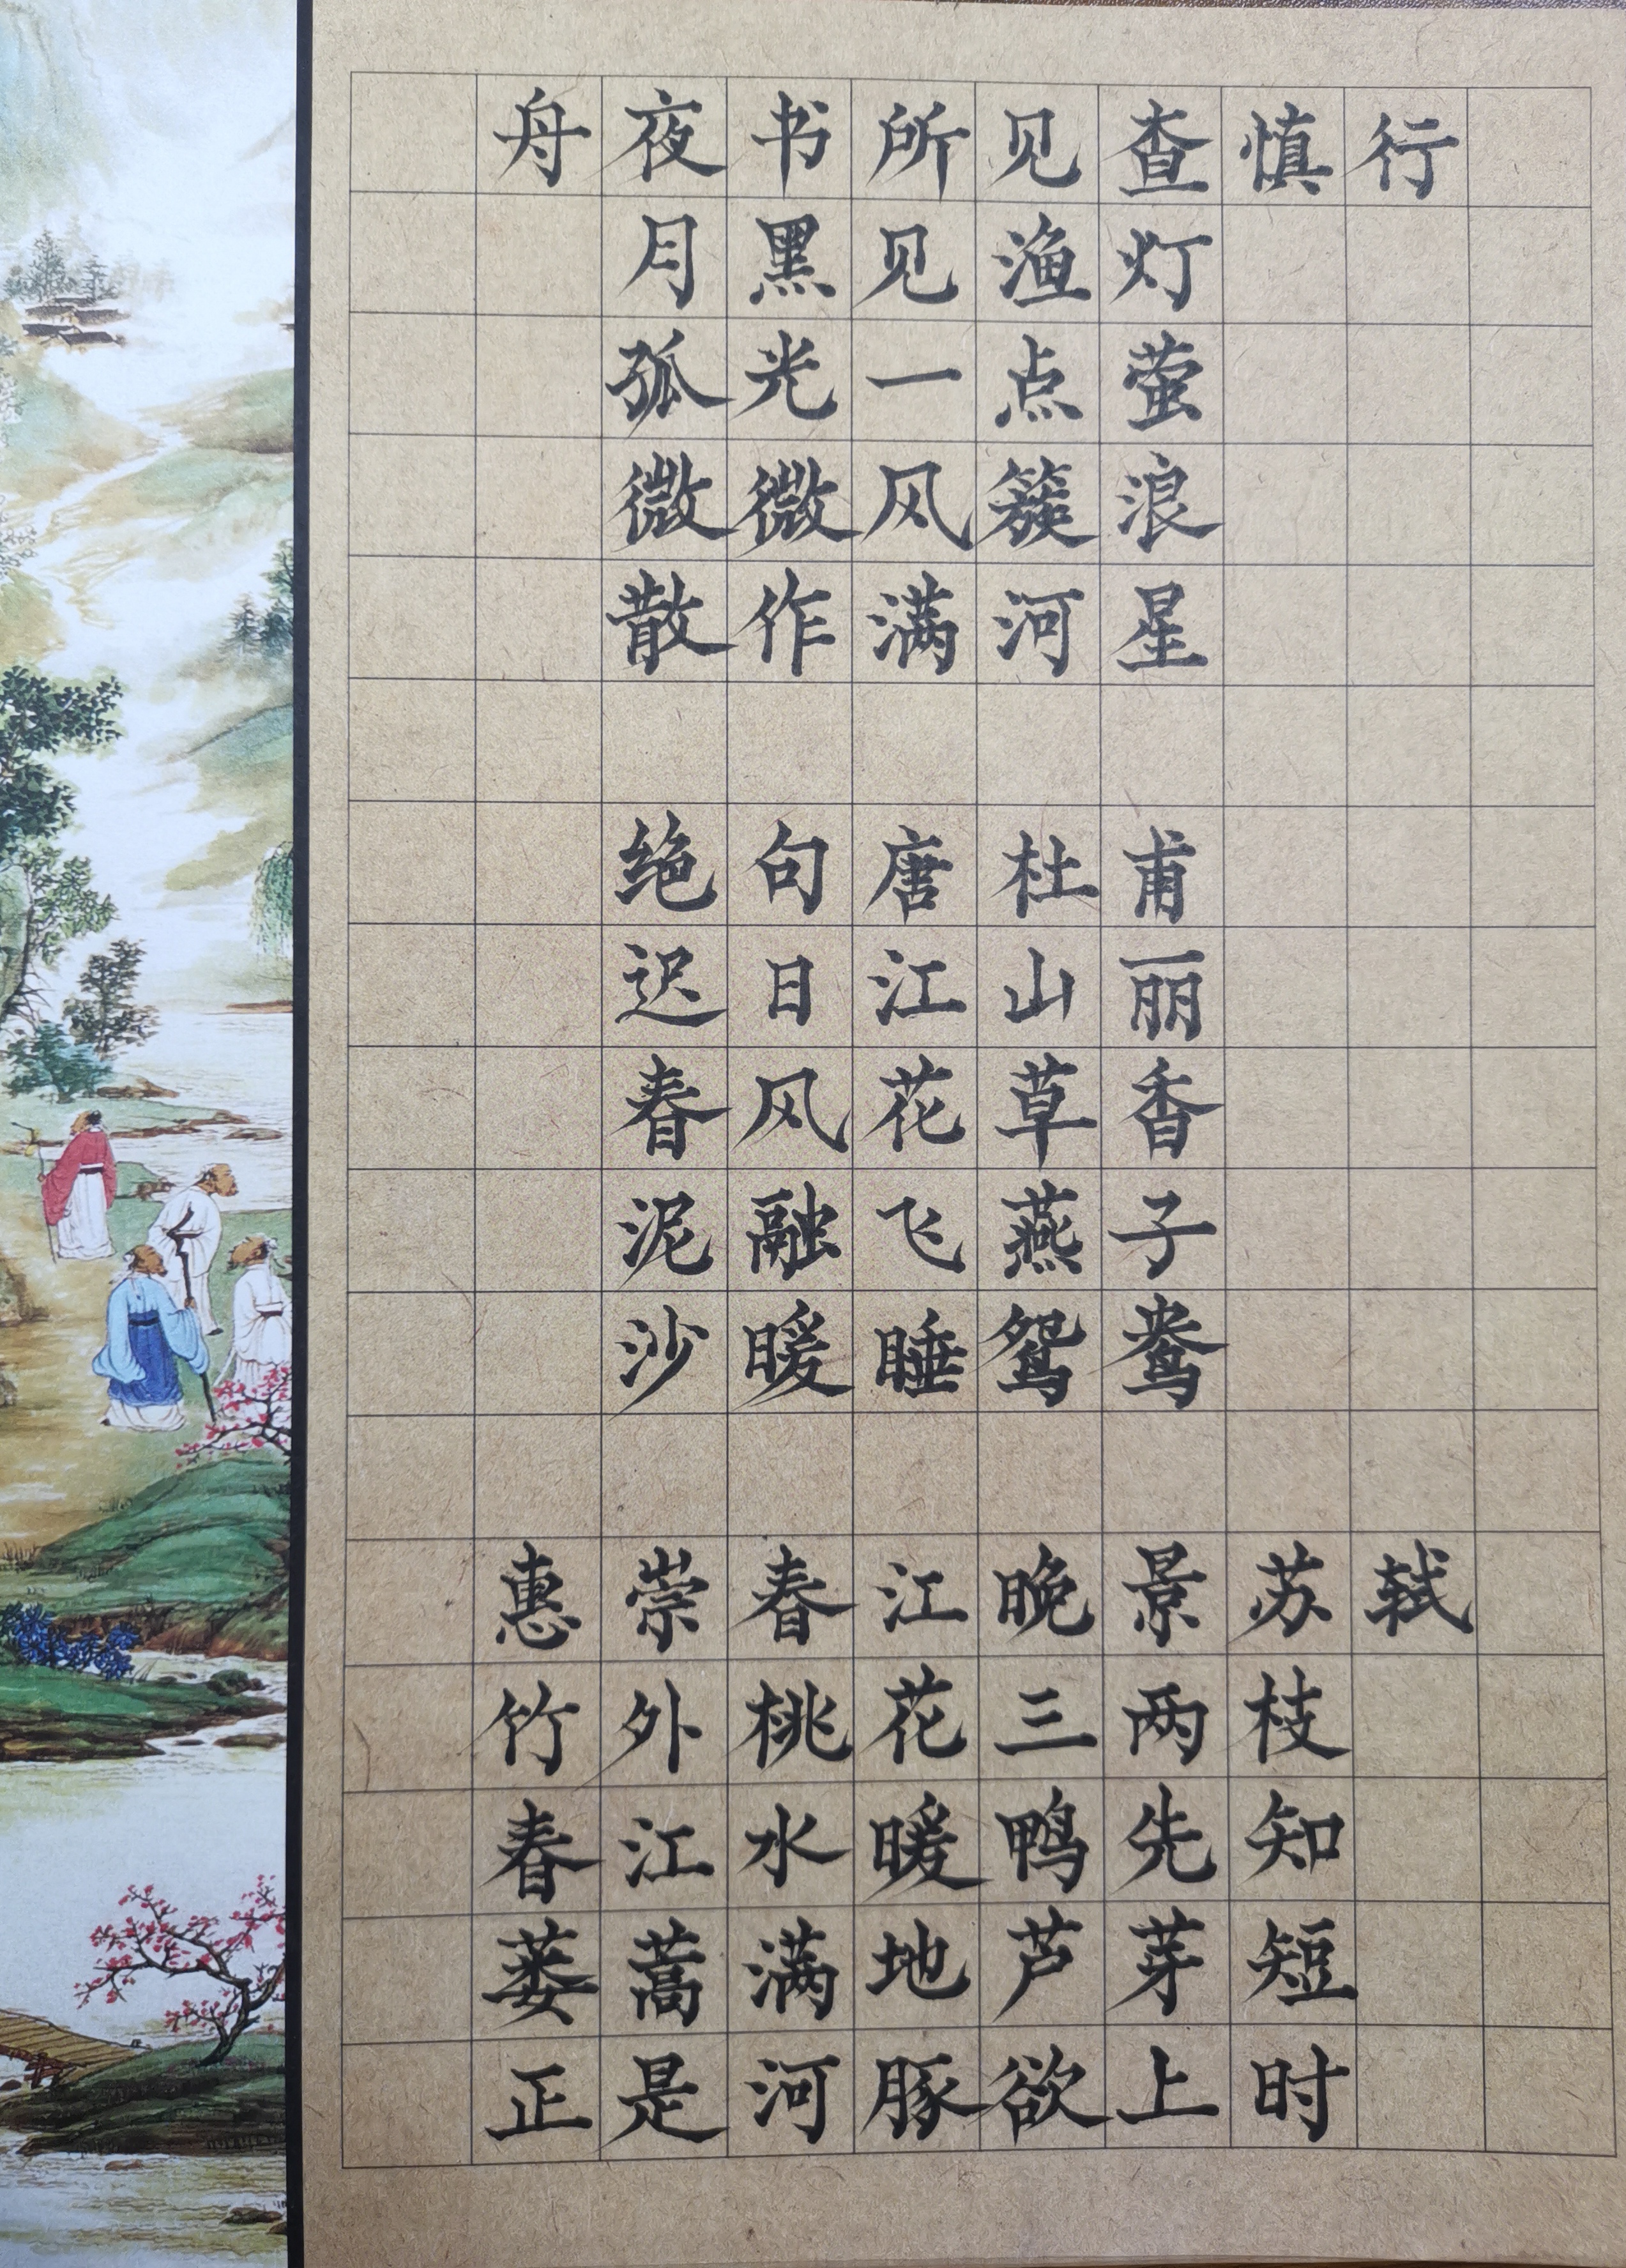 舟夜书所见查慎行
月黑见渔灯
孤光一点萤
微微风簇浪
散作满河星
绝句唐杜甫
迟日江山丽
春风花草香
泥融飞燕子
沙暖睡鸳鸯
惠崇春江晚景苏轼
竹外桃花三两枝
春江水暖鸭先知
蒌蒿满地芦芽短
正是河豚欲上时